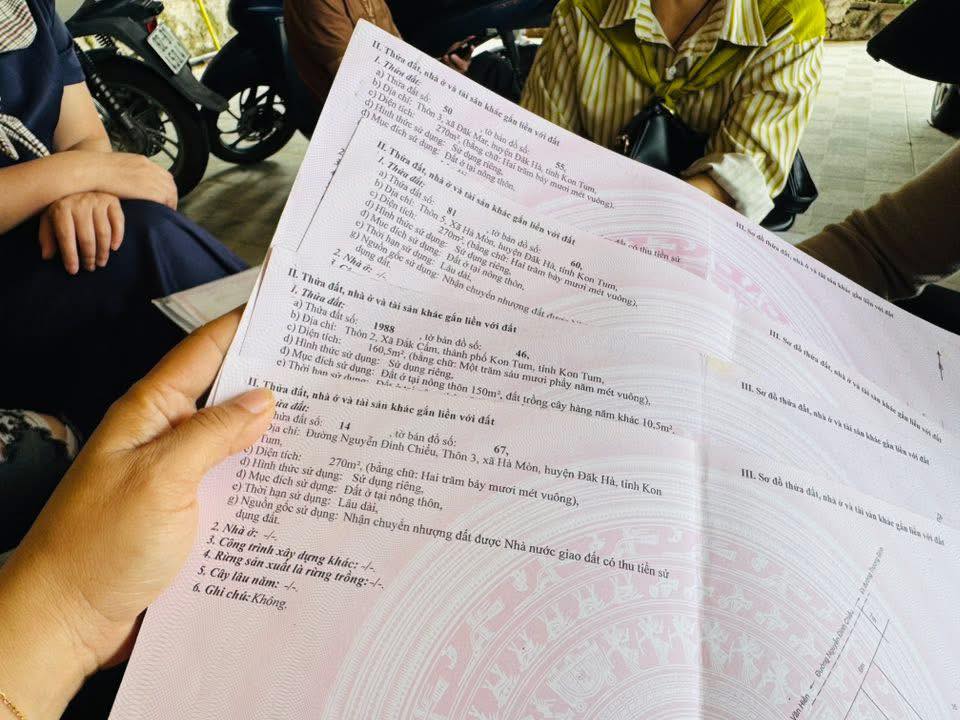 II. Thửa đất, nhà ở và tài sản khác gắn liền với đất
1. Thửa đất:
a) Thửa đất số: 50 , tờ bản đồ số: 55,
b) Địa chỉ: Thôn 3, xã Đăk Mar, huyện Đăk Hà, tỉnh Kon Tum,
c) Diện tích: 270m², (bằng chữ: Hai trăm bảy mươi mét vuông),
d) Hình thức sử dụng: Sử dụng riêng,
đ) Mục đích sử dụng: Đất ở tại nông thôn,
II. Thửa đất, nhà ở và tài sản khác gắn liền với đất
1. Thửa đất:
a) Thửa đất số: 81 , tờ bản đồ số: 60,
b) Địa chỉ: Thôn 5, Xã Hà Mòn, huyện Đăk Hà, tỉnh Kon Tum,
c) Diện tích: 270m², (bằng chữ: Hai trăm bảy mươi mét vuông),
d) Hình thức sử dụng: Sử dụng riêng,
đ) Mục đích sử dụng: Đất ở tại nông thôn,
e) Thời hạn sử dụng: Lâu dài,
g) Nguồn gốc sử dụng: Nhận chuyển nhượng đất được
dụng đất.
2. Nhà ở: -/-.
đất có thu tiền sử
II. Thửa đất, nhà ở và tài sản khác gắn liền với đất
1. Thửa đất:
a) Thửa đất số: 1988 , tờ bản đồ số: 46,
b) Địa chỉ: Thôn 2, Xã Đăk Cấm, thành phố Kon Tum, tỉnh Kon Tum,
c) Diện tích: 160,5m², (bằng chữ: Một trăm sáu mươi phẩy năm mét vuông),
d) Hình thức sử dụng: Sử dụng riêng,
đ) Mục đích sử dụng: Đất ở tại nông thôn 150m², đất trồng cây hàng năm khác 10,5m²,
e) Thời hạn sử dụng: Đất ở
II. Thửa đất, nhà ở và tài sản khác gắn liền với đất
đất:
Thửa đất số: 14 , tờ bản đồ số: 67,
Địa chỉ: Đường Nguyễn Đình Chiểu, Thôn 3, xã Hà Mòn, huyện Đăk Hà, tỉnh Kon
Tum,
c) Diện tích: 270m², (bằng chữ: Hai trăm bảy mươi mét vuông),
d) Hình thức sử dụng: Sử dụng riêng,
đ) Mục đích sử dụng: Đất ở tại nông thôn,
e) Thời hạn sử dụng: Lâu dài,
g) Nguồn gốc sử dụng: Nhận chuyển nhượng đất được Nhà nước giao đất có thu tiền sử
dụng đất.
2. Nhà ở: -/-.
3. Công trình xây dựng khác: -/-.
4. Rừng sản xuất là rừng trồng: -/-.
5. Cây lâu năm: -/-.
6. Ghi chú: Không.
III. Sơ đồ thửa đất, nhà ở và tài sản khác gắn liền với đất
III. Sơ đồ thửa đất, nhà ở và tài sản khác gắn liền với đất
III. Sơ đồ thửa đất, nhà ở và tài sản khác gắn liền với đất
III. Sơ đồ thửa đất, nhà ở và tài sản khác gắn liền với đất
Đường Nguyễn Đình Chiểu